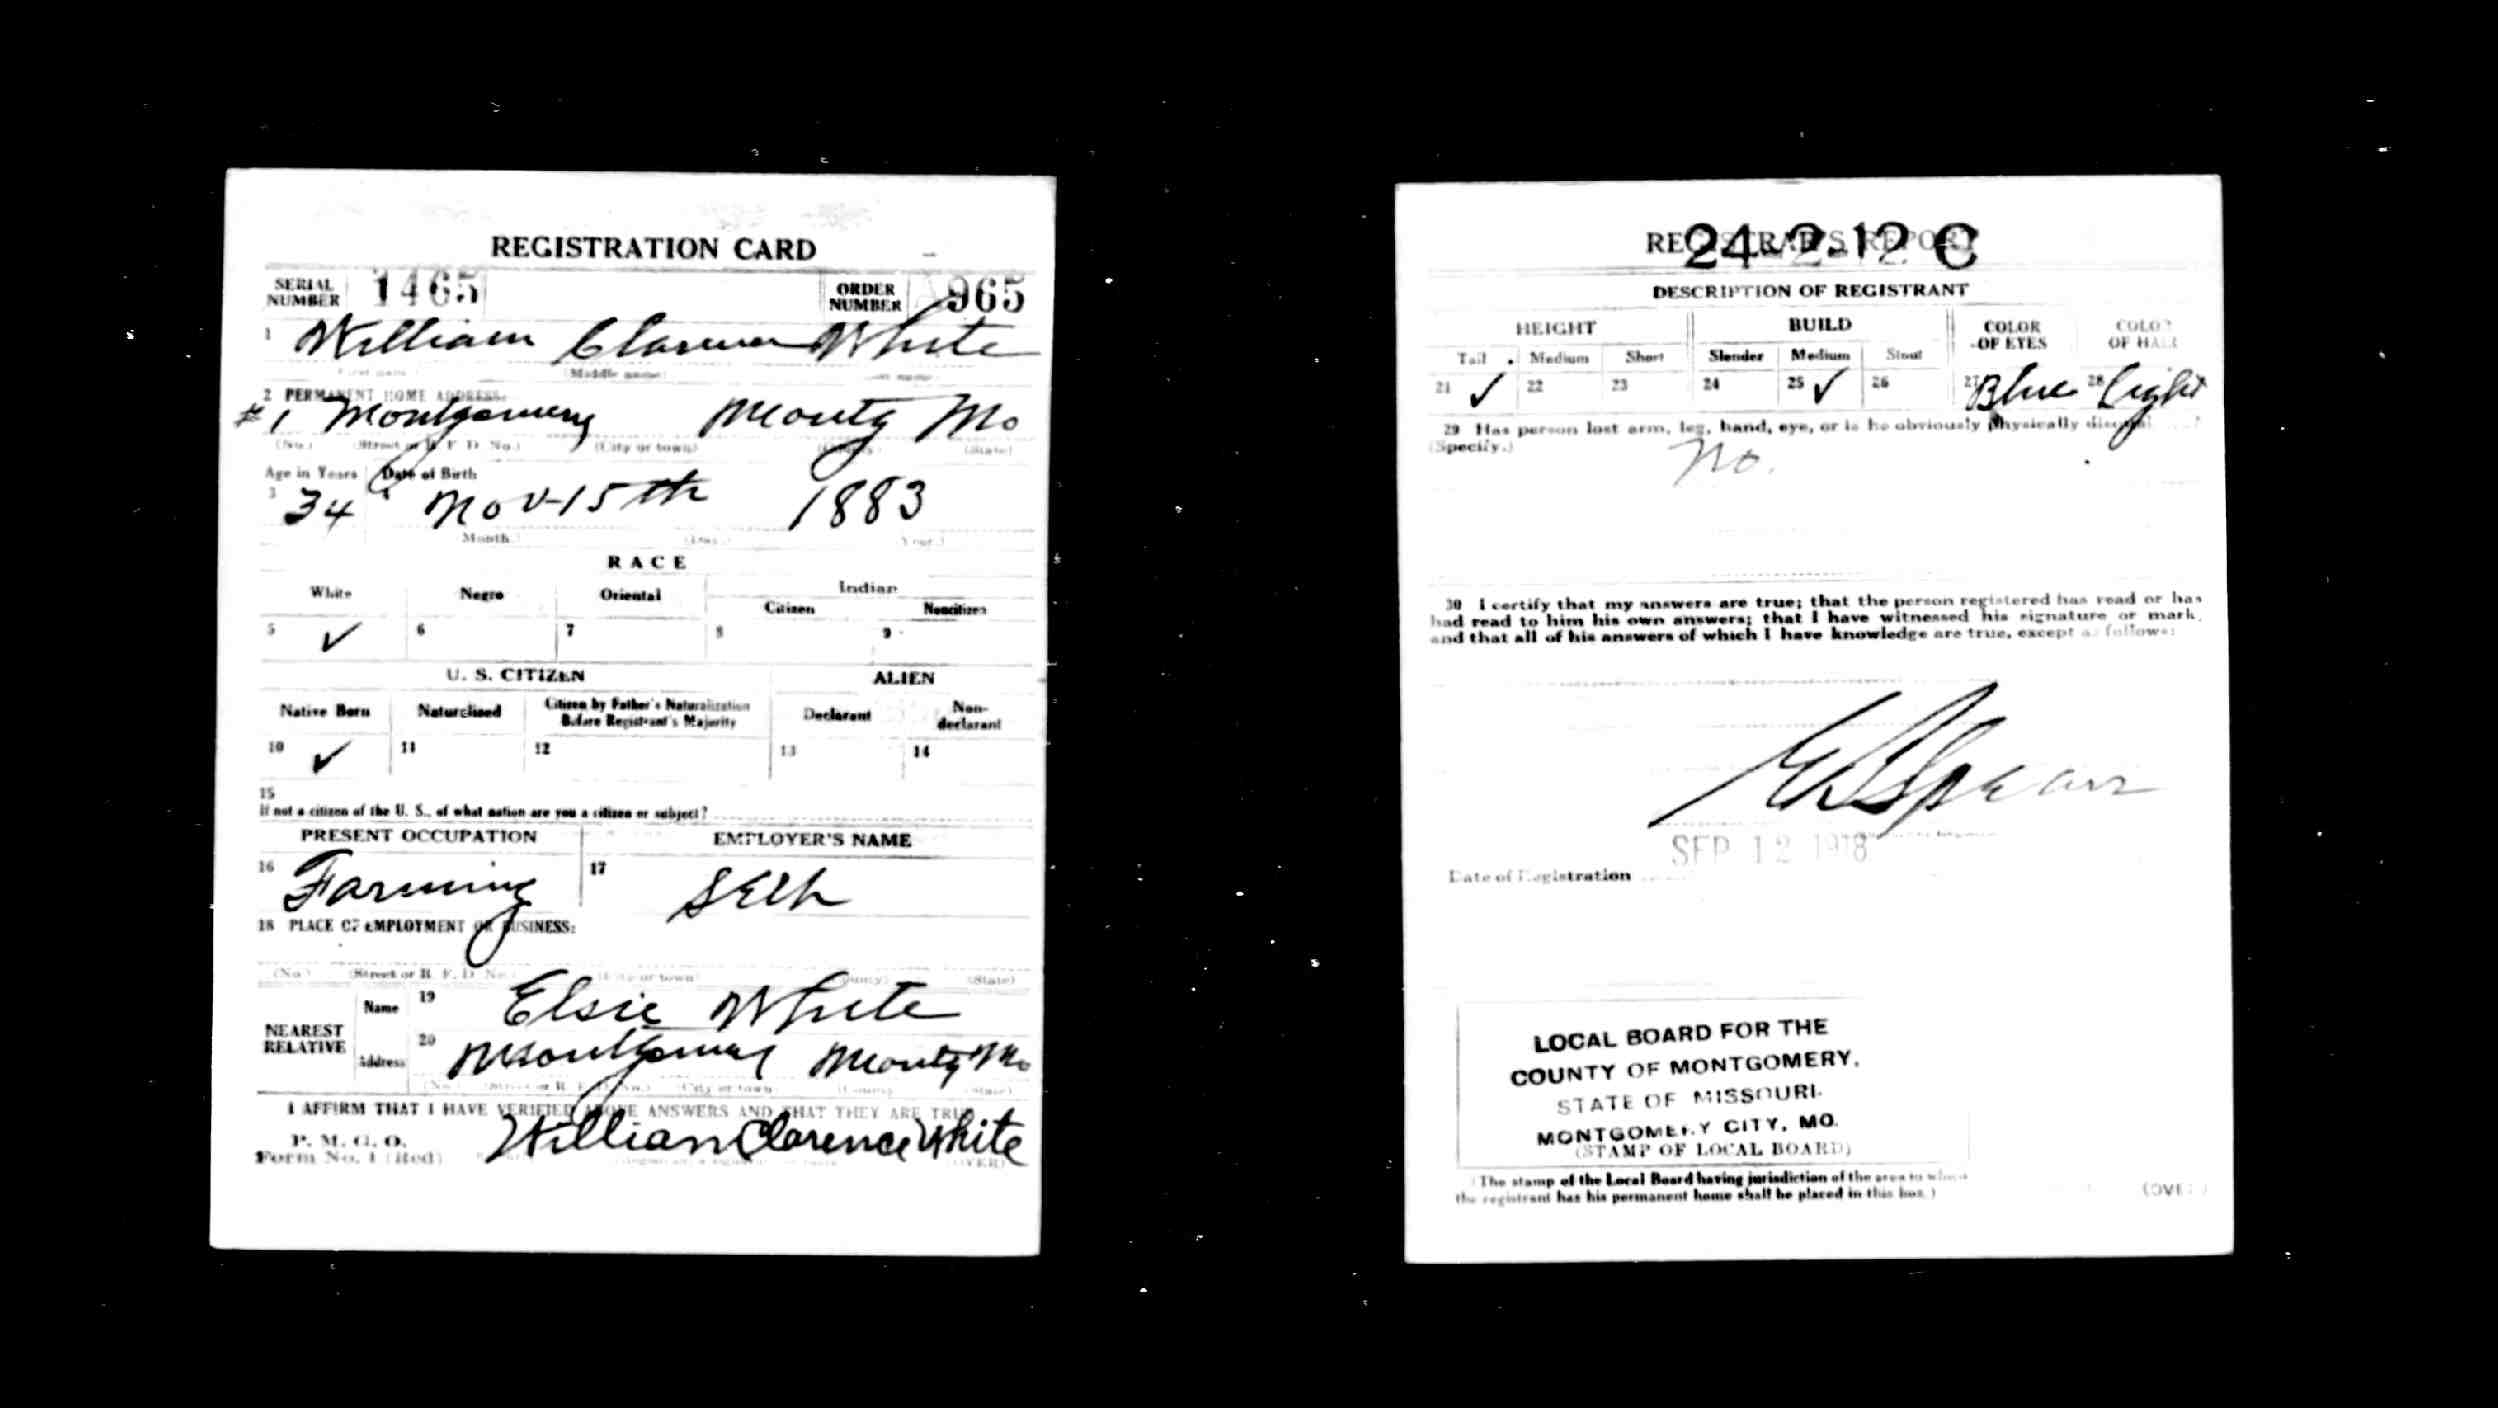 REGISTRATION CARD
SERIAL NUMBER 1465 ORDER NUMBER A965
1 William Clarence White
First name Middle name Last name
2 PERMANENT HOME ADDRESS:
#1 Montgomery Montg Mo
(No.) (Street or R. F. D. No.) (City or town) (County) (State)
Age in Years Date of Birth
3 34 4 Nov-15th 1883
Month. (Day.) Year.)
RACE
White Negro Oriental Indian
Citizen Noncitizen
5 ✓ 6 7 8 9
U. S. CITIZEN ALIEN
Native Born Naturalized Citizen by Father's Naturalization Before Registrant's Majority Declarant Non-declarant
10 ✓ 11 12 13 14
15
If not a citizen of the U. S., of what nation are you a citizen or subject?
PRESENT OCCUPATION EMPLOYER'S NAME
16 Farming 17 Self
18 PLACE OF EMPLOYMENT OR BUSINESS:
(No.) (Street or R. F. D. No.) (City or town) (County) (State)
NEAREST RELATIVE
Name 19 Elsie White
Address 20 Montgomery Montg Mo
(No.) (Street or R. F. D. No.) (City or town) (County) (State)
I AFFIRM THAT I HAVE VERIFIED ABOVE ANSWERS AND THAT THEY ARE TRUE
P. M. G. O.
Form No. 1 (Red) William Clarence White
(OVER)
REGISTRAR'S REPORT
24-2-12 C
DESCRIPTION OF REGISTRANT
HEIGHT BUILD COLOR OF EYES COLOR OF HAIR
Tall Medium Short Slender Medium Stout
21 ✓ 22 23 24 25 ✓ 26 27 Blue 28 Light
29 Has person lost arm, leg, hand, eye, or is he obviously physically disqualified?
(Specify.) No.
30 I certify that my answers are true; that the person registered has read or has
had read to him his own answers; that I have witnessed his signature or mark,
and that all of his answers of which I have knowledge are true, except as follows:
Date of Registration SEP 12 1918
LOCAL BOARD FOR THE
COUNTY OF MONTGOMERY,
STATE OF MISSOURI.
MONTGOMERY CITY, MO.
(STAMP OF LOCAL BOARD)
(The stamp of the Local Board having jurisdiction of the area in which
the registrant has his permanent home shall be placed in this box.)
(OVER)